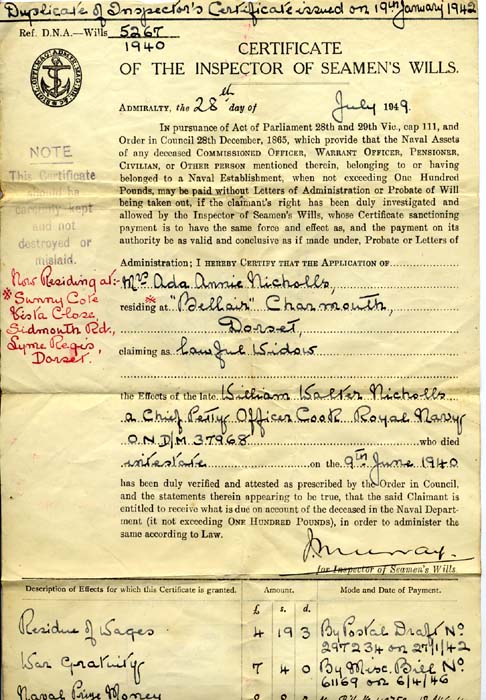 Duplicate of Inspector's Certificate issued on 19th January 1942
Ref. D.N.A.—Wills 5267
1940
CERTIFICATE
OF THE INSPECTOR OF SEAMEN'S WILLS.
ADMIRALTY, the 28th day of July 1949.
In pursuance of Act of Parliament 28th and 29th Vic., cap 111, and
Order in Council 28th December, 1865, which provide that the Naval Assets
of any deceased COMMISSIONED OFFICER, WARRANT OFFICER, PENSIONER,
CIVILIAN, or OTHER PERSON mentioned therein, belonging to or having
belonged to a Naval Establishment, when not exceeding One Hundred
Pounds, may be paid without Letters of Administration or Probate of Will
being taken out, if the claimant's right has been duly investigated and
allowed by the Inspector of Seamen's Wills, whose Certificate sanctioning
payment is to have the same force and effect as, and the payment on its
authority be as valid and conclusive as if made under, Probate or Letters of
Administration; I HEREBY CERTIFY THAT THE APPLICATION OF
NOTE
This Certificate
should be
carefully kept
and not
destroyed or
mislaid.
Now Residing at:-
* Sunny Cote
Vista Close,
Sidmouth Rd.,
Lyme Regis,
Dorset.
Mrs Ada Annie Nicholls,
residing * at "Bellair" Charmouth,
Dorset,
claiming as Lawful Widow
the Effects of the late William Walter Nicholls
a Chief Petty Officer Cook Royal Navy
O.N. D/M 37968 who died
intestate on the 9th June 1940
has been duly verified and attested as prescribed by the Order in Council,
and the statements therein appearing to be true, that the said Claimant is
entitled to receive what is due on account of the deceased in the Naval Depart-
ment (it not exceeding ONE HUNDRED POUNDS), in order to administer the
same according to Law.
for Inspector of Seamen's Wills
Description of Effects for which this Certificate is granted. Amount. Mode and Date of Payment.
£ s. d.
Residue of Wages 4 19 3 By Postal Draft No
297234 on 27/1/42
War Gratuity 7 4 0 By Misc. Bill No
61169 on 6/4/46
Naval Prize Money